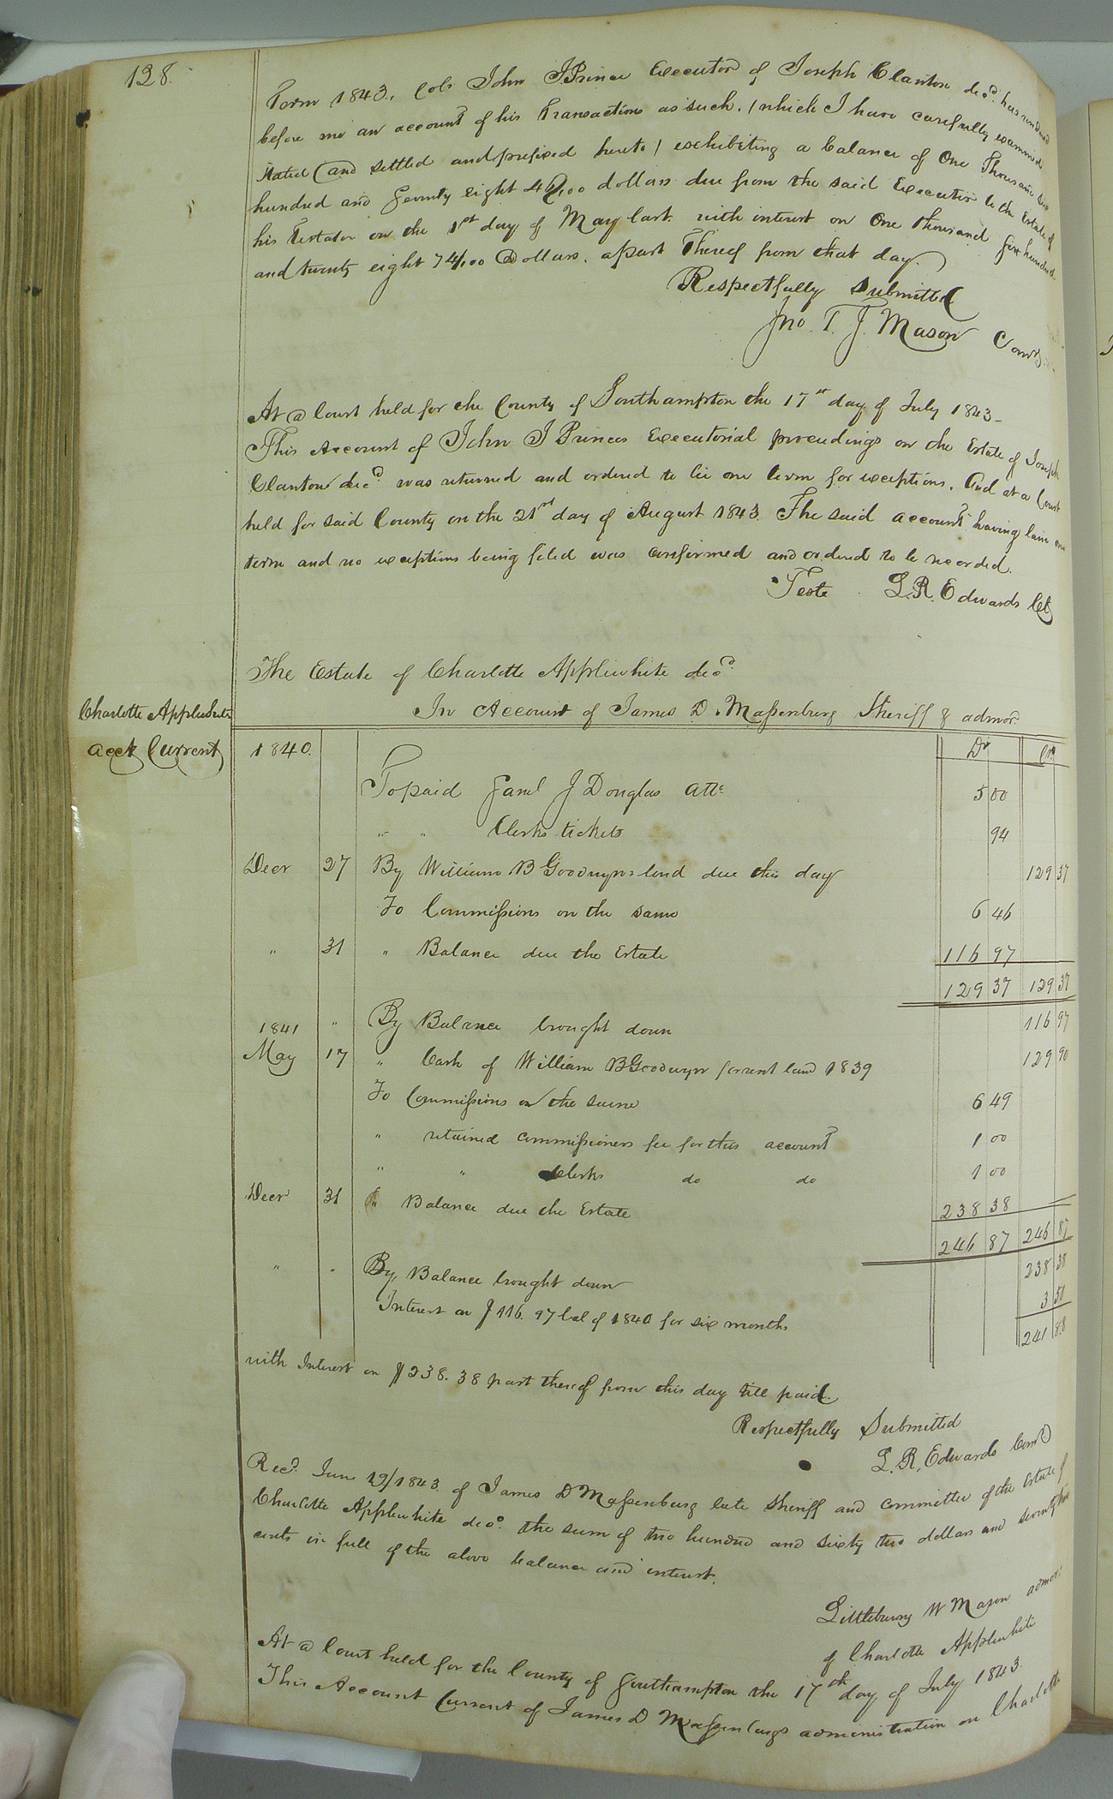 128.
Term 1843. Col: John J Prince Executor of Joseph Clanton decd. has rendered
before me an account of his Transactions as such. (which I have carefully examined
stated and settled and prefixed hereto) exhibiting a balance of One Thousand
hundred and seventy eight 42/100 dollars due from the said Executor to the Estate of
his Testator on the 1st day of May last with interest on One thousand five hundred
and twenty eight 74/100 Dollars, a part thereof from that day.
Respectfully Submitted
Jno. T. J. Mason Comr.
At a Court held for the County of Southampton the 17st day of July 1843-
This Account of John J Princes Executorial proceedings on the Estate of Joseph
Clanton decd. was returned and ordered to lie one term for exceptions. And at a Court
held for said County on the 21st day of August 1843. The said account having lain one
term and no exceptions being filed was confirmed and ordered to be recorded.
Teste L. R. Edwards Clk
The Estate of Charlotte Applewhite decd.
In Account of James D. Massenburg Sheriff & admor
Charlotte Applewhite
acct Current
1840. Dr Cr.
To paid Saml J Douglas atto. 5 00
" " Clerks tickets 94
Decr 27 By William B Goodwyns bond due this day 129 37
To Commissions on the same 6 46
" 31 " Balance due the Estate 116 97
129 37 129 37
1841 " By Balance brought down 116 97
May 17 " Cash of William B Goodwyn for rent land 1839 129 90
To Commissions on the same 6 49
" retained commissioners fee for this account 1 00
" " Clerks do do 1 00
Decr 31 " Balance due the Estate 238 38
246 87 246 87
" " By Balance brought down 238 38
Interest on $116.97 bal of 1840 for six months 3 50
241 88
with Interest on $238.38 part thereof from this day till paid.
Respectfully Submitted
L. R. Edwards Comr
Recd. June 19/1843 of James D Massenburg late Sheriff and committee of the Estate of
Charlotte Applewhite decd. the sum of two hundred and sixty two dollars and seventy
cents in full of the above balance and interest.
Littlebury W Mason admor.
of Charlotte Applewhite
At a Court held for the County of Southampton the 17th day of July 1843.
This Account Current of James D Massenburgs administration on Charlotte